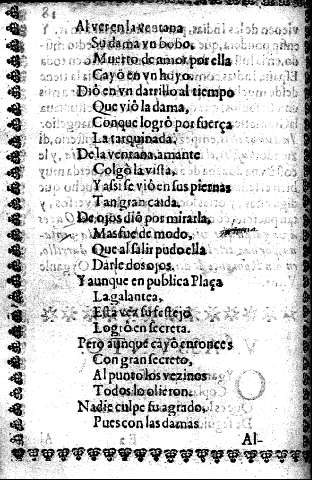 Al ver en la ventana
Su dama vn bobo,
Muerto de amor por ella
Cayò en vn hoyo.
Diò en vn darrillo al tiempo
Que viò la dama,
Con que logrò por fuerça
La tarquinada.
De la ventana, amante
Colgò la vista,
Y assi se viò en sus piernas
Tan gran caida.
De ojos diò por mirarla,
Mas fue de modo,
Que al salir pudo ella
Darle dos ojos.
Y aunque en publica Plaça
La galantea,
Esta vez su festejo
Logrò en secreta.
Pero aunque cayò entonces
Con gran secreto,
Al punto los vezinos
Todos lo olieron.
Nadie culpe su agrado,
Pues con las damas
Al-